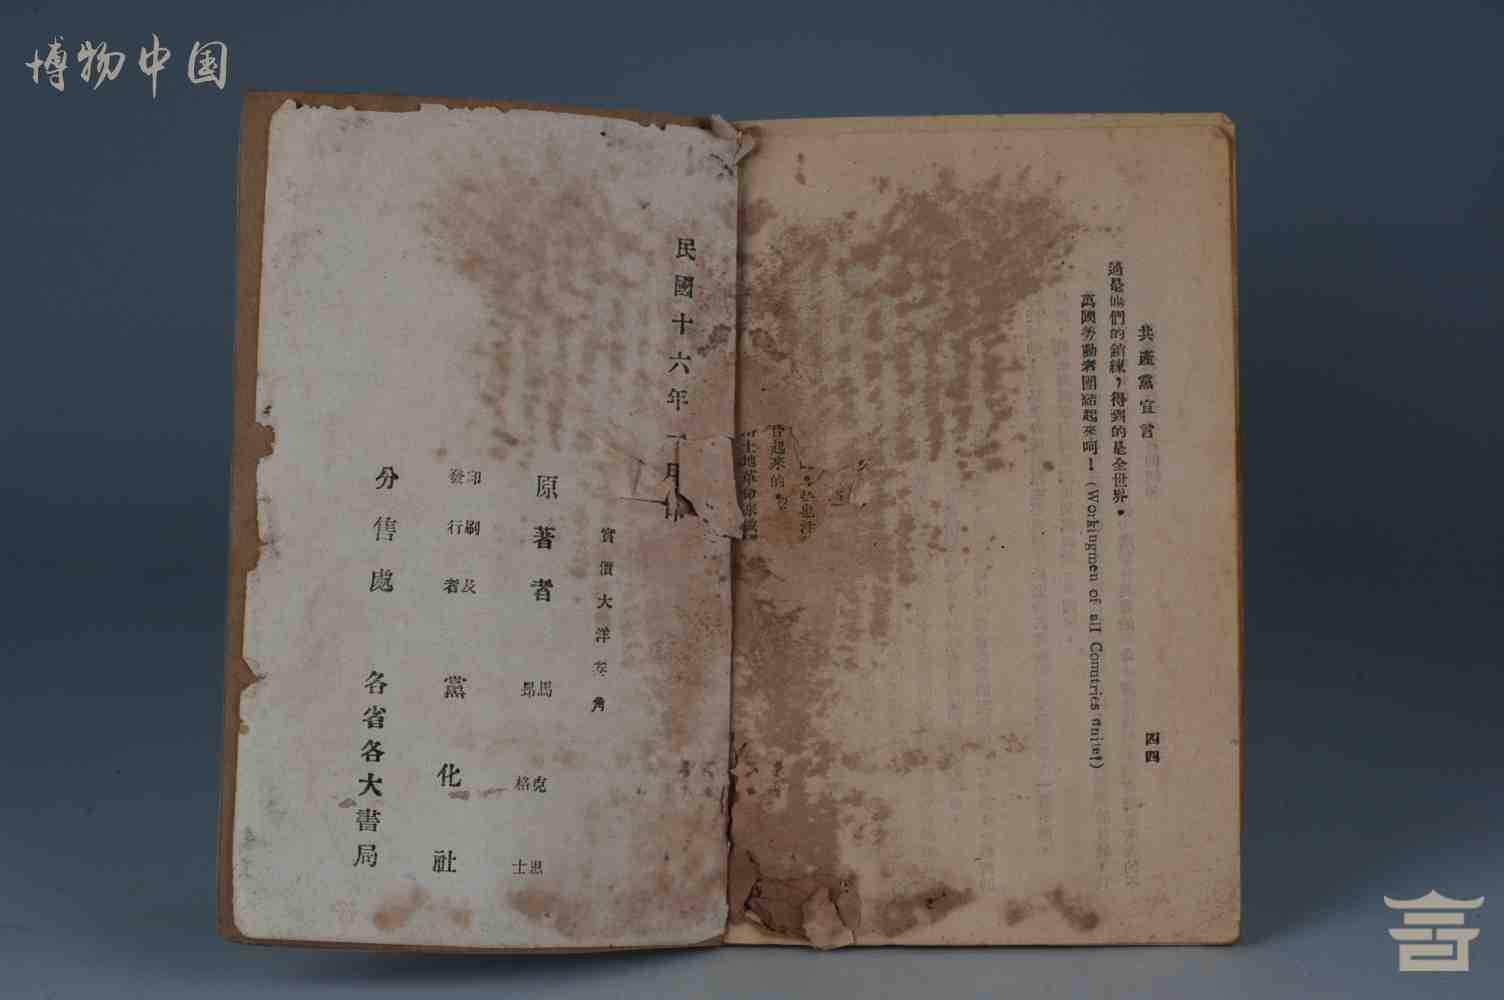 博物中国
共產黨宣言
四四
這是他們的鎖練，得到的是全世界。
萬國勞動者團結起來呵！(Workingmen of all Countries unite!)
起來的
土地革命
民國十六年一月
實價大洋壹角
原著者 馬格士 昂克思
印刷及發行者 黨化社
分售處 各省各大書局